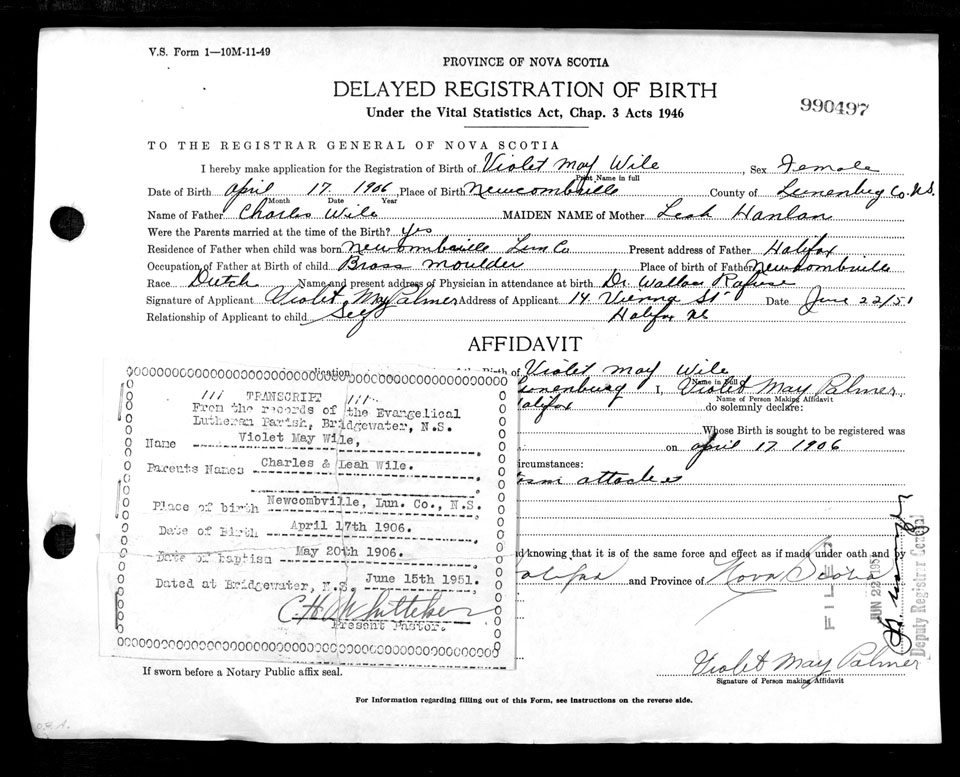 V.S. Form 1—10M-11-49
PROVINCE OF NOVA SCOTIA
DELAYED REGISTRATION OF BIRTH
Under the Vital Statistics Act, Chap. 3 Acts 1946
990497
TO THE REGISTRAR GENERAL OF NOVA SCOTIA
I hereby make application for the Registration of Birth of Violet May Wile, Sex Female
Print Name in full
Date of Birth April 17 1906 Place of Birth Newcombville County of Lunenburg Co. N.S.
Month Date Year
Name of Father Charles Wile MAIDEN NAME of Mother Leah Hanlan
Were the Parents married at the time of the Birth? yes
Residence of Father when child was born Newcombville Lun Co Present address of Father Halifax
Occupation of Father at Birth of child Brass Moulder Place of birth of Father Newcombville
Race Dutch Name and present address of Physician in attendance at birth Dr. Wallace Rafuse
Signature of Applicant Violet May Palmer Address of Applicant 14 Vienna St Date June 22/51
Relationship of Applicant to child Self Halifax NS
AFFIDAVIT
Birth of Violet May Wile
Lunenburg I, Violet May Palmer,
Name in full
Name of Person Making Affidavit
Halifax do solemnly declare:
Whose Birth is sought to be registered was
on April 17 1906
circumstances:
attached
d knowing that it is of the same force and effect as if made under oath and by
Halifax and Province of Nova Scotia
FILED
JUN 22 195
Deputy Registrar General
Violet May Palmer
Signature of Person making Affidavit
TRANSCRIPT
From the records of the Evangelical
Lutheran Parish, Bridgewater, N.S.
Name Violet May Wile,
Parents Names Charles & Leah Wile.
Place of birth Newcombville, Lun. Co., N.S.
Date of Birth April 17th 1906.
Date of baptism May 20th 1906.
Dated at Bridgewater, N.S June 15th 1951.
C.H. Whitteker
Present Pastor.
If sworn before a Notary Public affix seal.
For Information regarding filling out of this Form, see instructions on the reverse side.